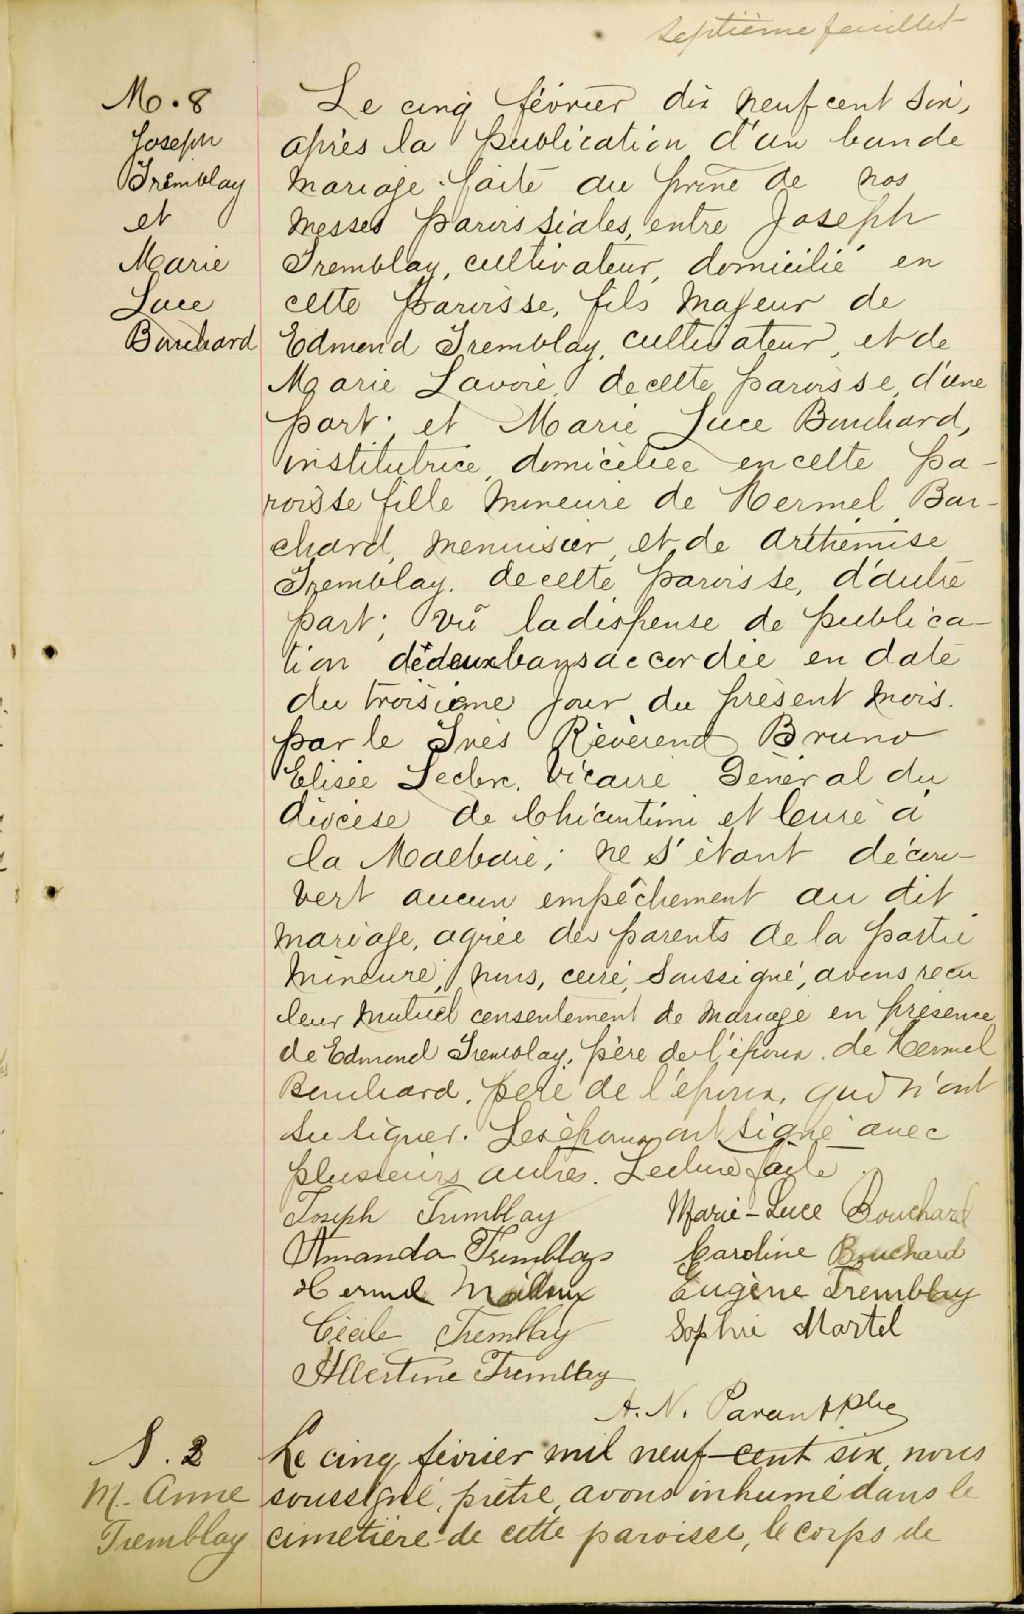 Septième feuillet
M. 8
Joseph
Tremblay
et
Marie
Luce
Bouchard
Le cinq février dix neuf cent six,
après la publication d'un bande
mariage faite au prône de nos
messes paroissiales, entre Joseph
Tremblay, cultivateur, domicilié en
cette paroisse, fils majeur de
Edmond Tremblay, cultivateur, et de
Marie Lavoie, de cette paroisse, d'une
part; et Marie Luce Bouchard,
institutrice, domiciliée en cette pa-
roisse fille mineure de Hermel Bou-
chard, menuisier, et de Arthémise
Tremblay, de cette paroisse, d'autre
part; vû la dispense de publica-
tion de deux bans accordée en date
du troisième jour du présent mois.
par le Très Révérend Bruno
Elisée Leclerc, Vicaire Général du
diocèse de Chicoutimi et Curé à
la Malbaie; ne s'étant décou-
vert aucun empêchement au dit
mariage, agréé des parents de la partie
mineure, nous, curé, soussigné, avons reçu
leur mutuel consentement de mariage en présence
de Edmond Tremblay, père de l'époux, de Hermel
Bouchard, père de l'époux, qui n'ont
su signer. Les époux ont signé avec
plusieurs autres. Lecture faite.
Joseph Tremblay Marie-Luce Bouchard
Amanda Tremblay Caroline Bouchard
Hermel Eugène Tremblay
Cécile Tremblay Sophie Martel
Albertine Tremblay
A. N. Parant Ptre
S. 2
M. Anne
Tremblay
Le cinq février mil neuf-cent six, nous
soussigné, prêtre, avons inhumé dans le
cimetière de cette paroisse, le corps de